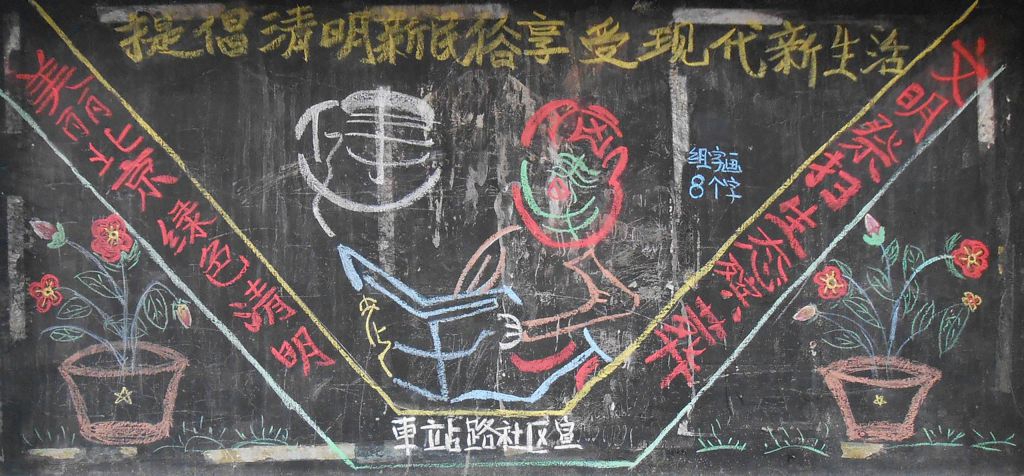 提倡清明新民俗享受现代新生活
美前北京绿色清明
文明祭扫生态殡葬
组字画
8个字
車站路社区宣